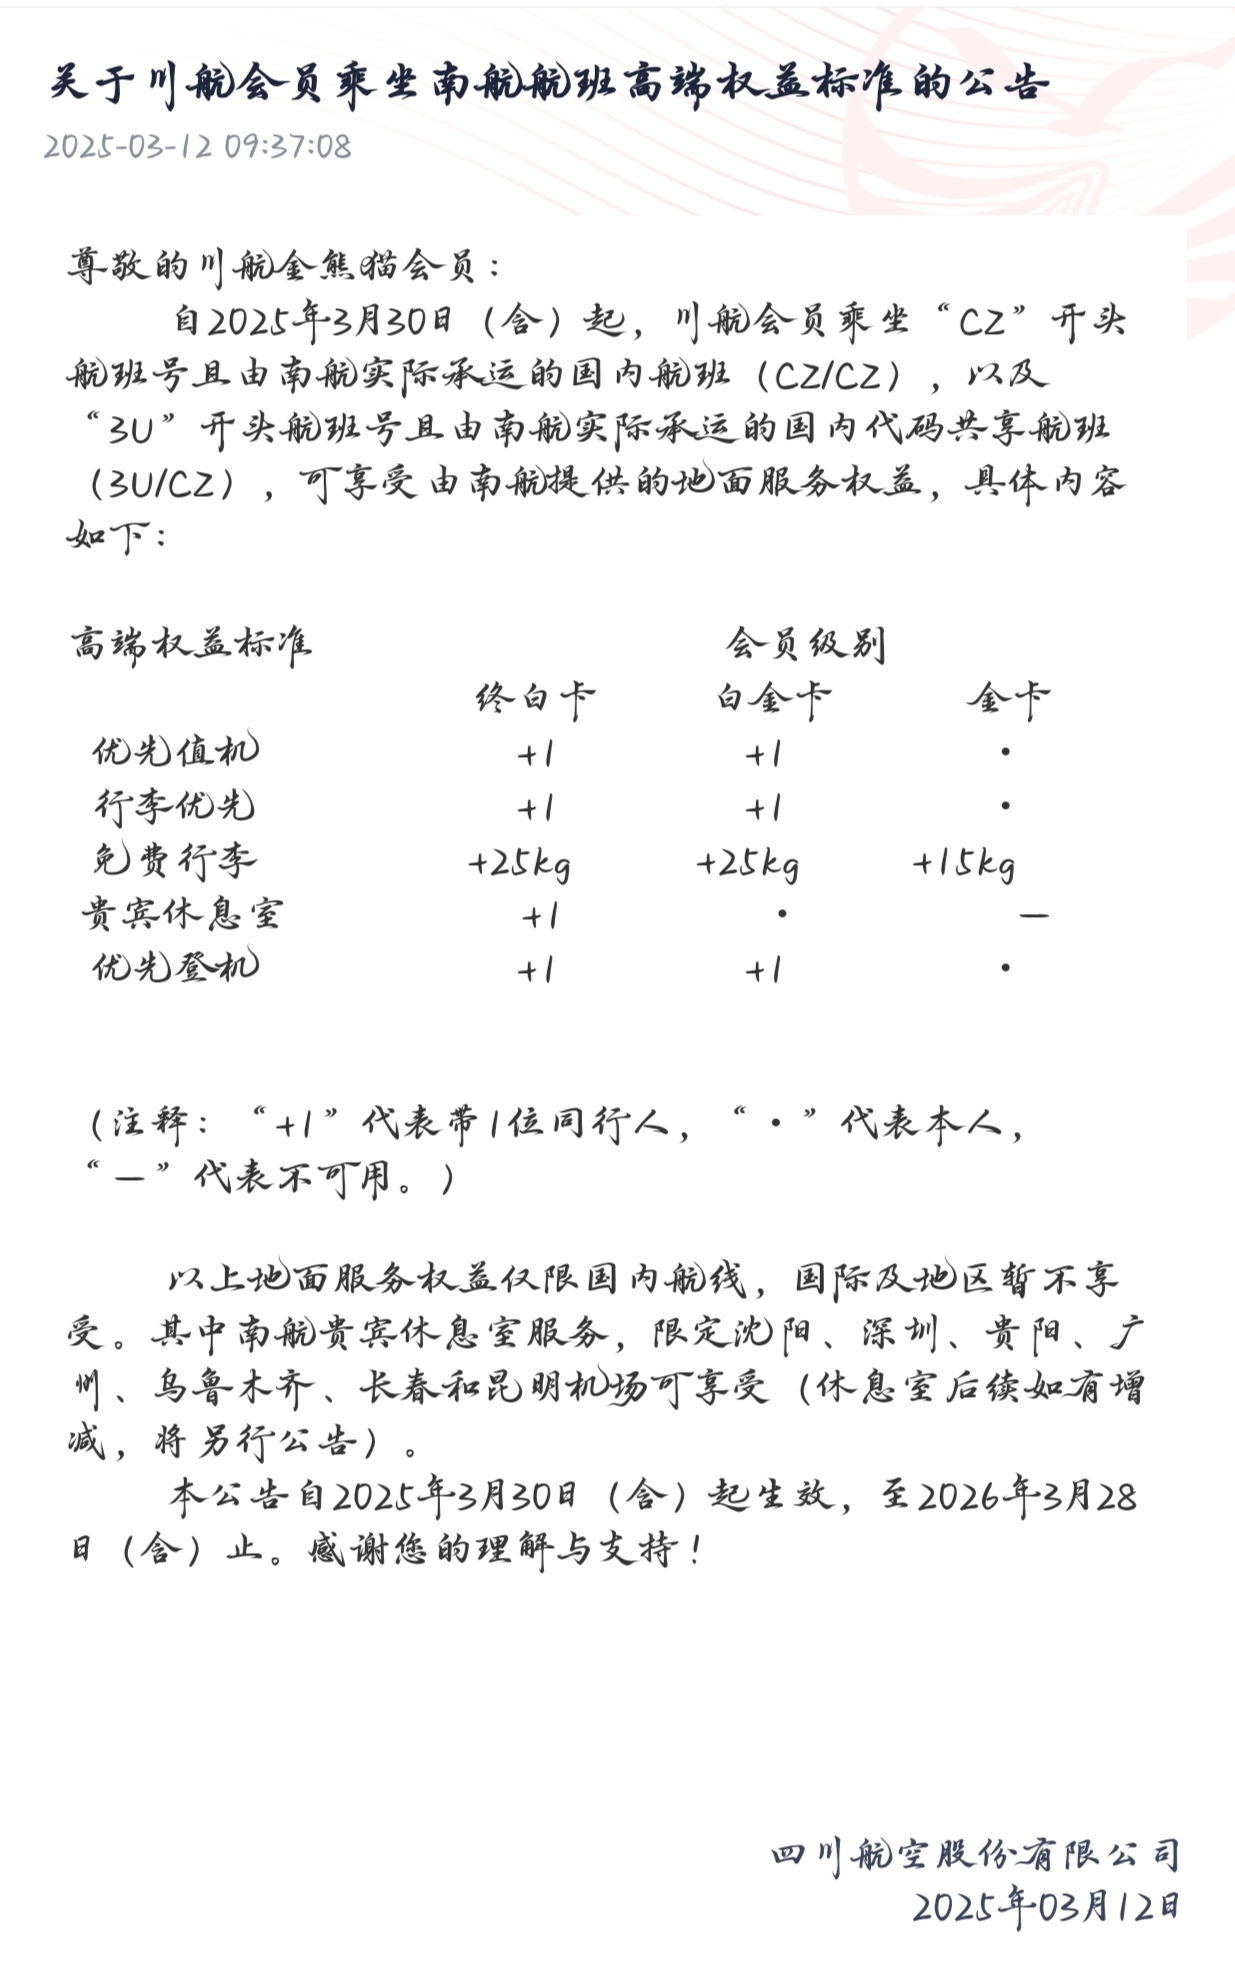 关于川航会员乘坐南航航班高端权益标准的公告
2025-03-12 09:37:08
尊敬的川航金熊猫会员：
自2025年3月30日（含）起，川航会员乘坐“CZ”开头
航班号且由南航实际承运的国内航班（CZ/CZ），以及
“3U”开头航班号且由南航实际承运的国内代码共享航班
（3U/CZ），可享受由南航提供的地面服务权益，具体内容
如下：
高端权益标准 会员级别
终白卡 白金卡 金卡
优先值机 +1 +1 •
行李优先 +1 +1 •
免费行李 +25kg +25kg +15kg
贵宾休息室 +1 • —
优先登机 +1 +1 •
（注释：“+1”代表带1位同行人，“•”代表本人，
“—”代表不可用。）
以上地面服务权益仅限国内航线，国际及地区暂不享
受。其中南航贵宾休息室服务，限定沈阳、深圳、贵阳、广
州、乌鲁木齐、长春和昆明机场可享受（休息室后续如有增
减，将另行公告）。
本公告自2025年3月30日（含）起生效，至2026年3月28
日（含）止。感谢您的理解与支持！
四川航空股份有限公司
2025年03月12日